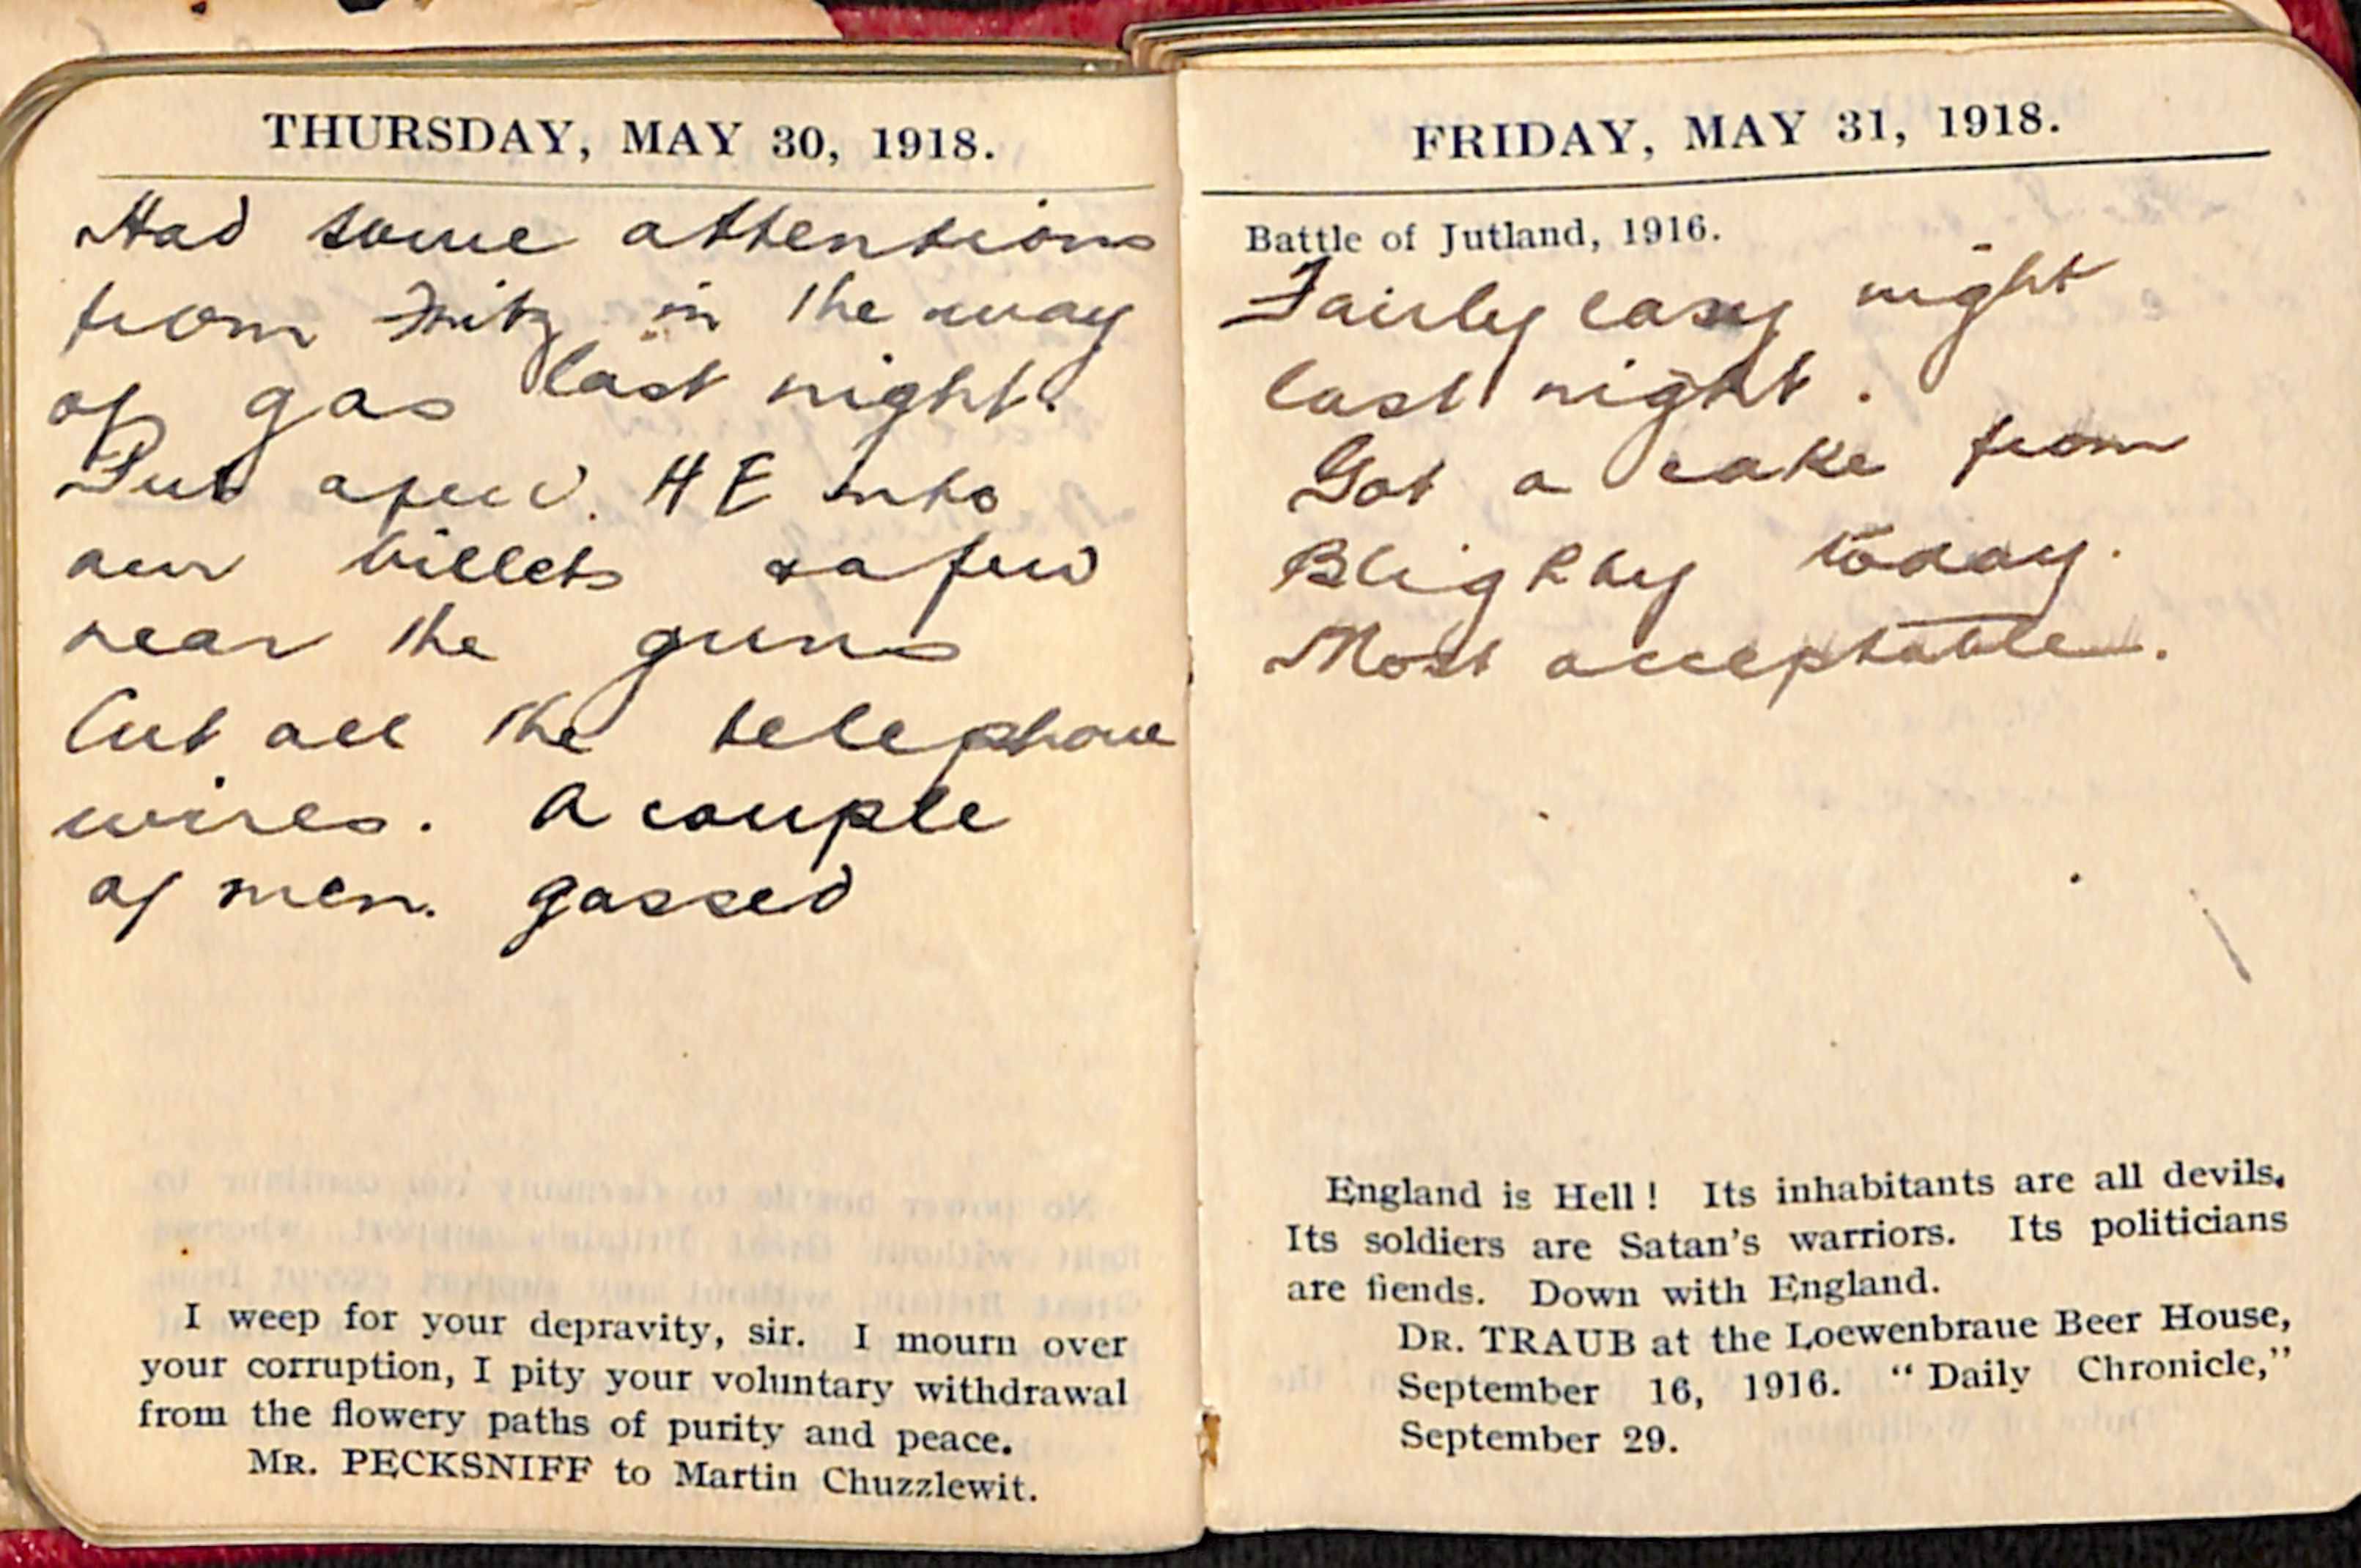 THURSDAY, MAY 30, 1918.
Had some attentions
from Fritz in the way
of gas last night.
Put a few. H E into
our billets & a few
near the guns
Cut all the telephone
wires. A couple
of men. gassed
I weep for your depravity, sir. I mourn over
your corruption, I pity your voluntary withdrawal
from the flowery paths of purity and peace.
MR. PECKSNIFF to Martin Chuzzlewit.
FRIDAY, MAY 31, 1918.
Battle of Jutland, 1916.
Fairly easy night
last night.
Got a cake from
Blighty today.
Most acceptable.
England is Hell! Its inhabitants are all devils.
Its soldiers are Satan's warriors. Its politicians
are fiends. Down with England.
DR. TRAUB at the Loewenbraue Beer House,
September 16, 1916. "Daily Chronicle,"
September 29.